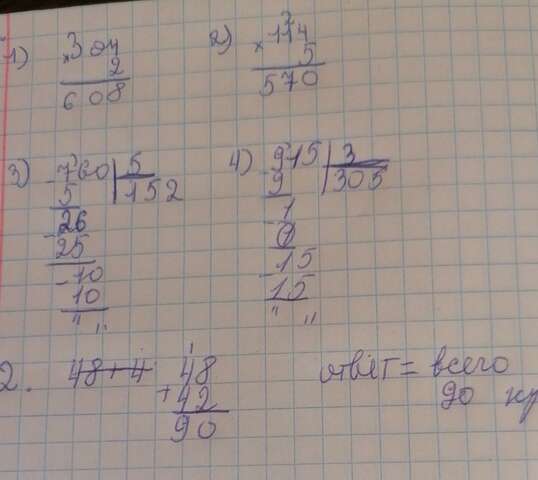 1) ×304
2
608
2) 2
×114
5
570
3) -760 | 5
5 | 152
26
-25
-10
10
" "
4) -915 | 3
9 | 305
-1
0
-15
15
" "
2. 48+4
1
48
+42
90
ответ = всего
90